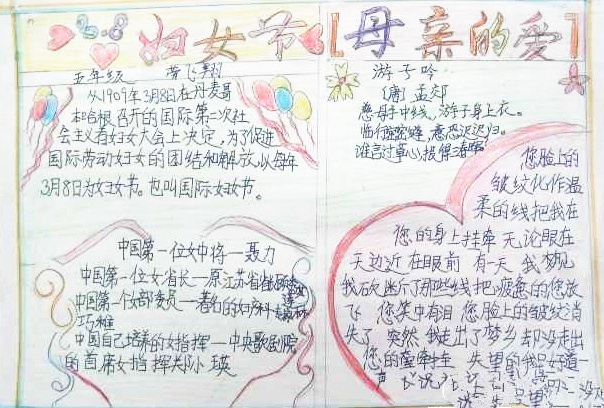 3-8 妇女节
五年级
从1909年3月8日在丹麦哥
本哈根召开的国际第二次社
会主义者妇女大会上决定,为了促进
国际劳动妇女的团结和解放,以每年
3月8日为妇女节。也叫国际妇女节。
中国第一位女中将—聂力
中国第一位女省长—原江苏省省长
中国第一个女部委员—著名的妇产科专家林
巧稚
中国自己培养的女指挥—中央歌剧院
的首席女指挥郑小瑛
【母亲的爱】
游子吟
(唐)孟郊
慈母手中线,游子身上衣。
临行密密缝,意恐迟迟归。
谁言寸草心,报得三春晖。
您脸上的
皱纹化作温
柔的线把我在
您的身上挂牵 无论眼在
天边近在眼前 有一天 我梦见
我砍断了那些线把疲惫的您放
飞 您集中有泪 您脸上的皱纹消
失了 突然 我走出了梦乡却没走出
您的牵挂 失望的我只好道一
声